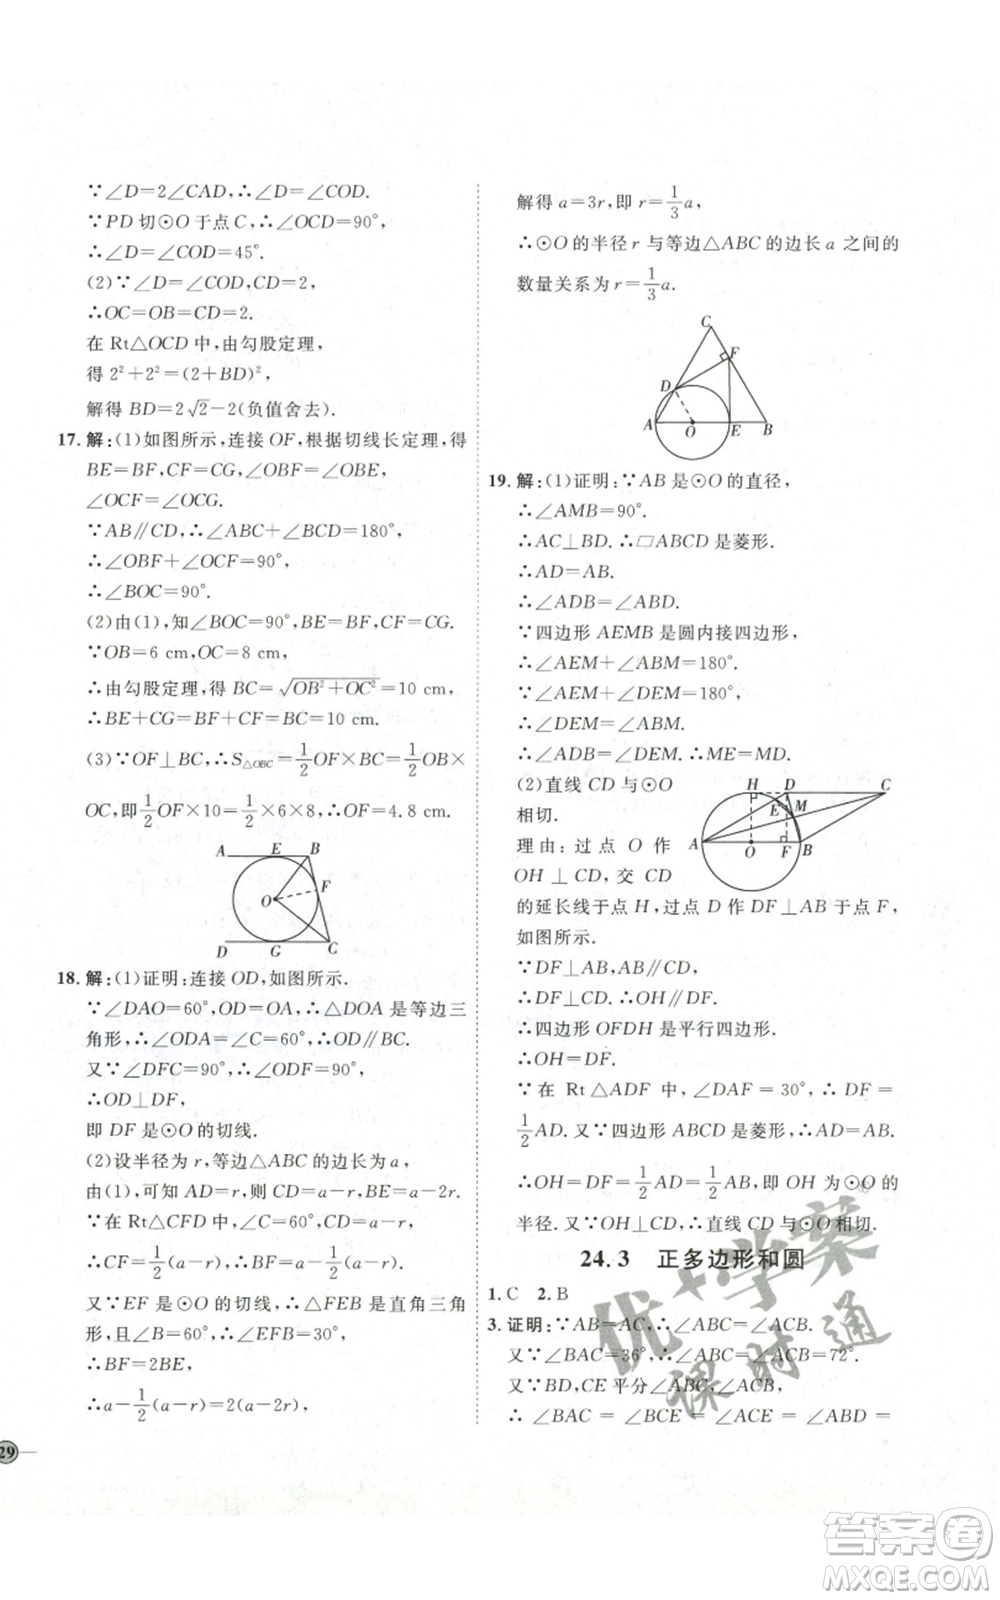 ∵∠D=2∠CAD,∴∠D=∠COD.
∵PD切⊙O于点C,∴∠OCD=90°,
∴∠D=∠COD=45°.
(2)∵∠D=∠COD,CD=2,
∴OC=OB=CD=2.
在Rt△OCD中,由勾股定理,
得2²+2²=(2+BD)²,
解得BD=2√2-2(负值舍去).
17.解:(1)如图所示,连接OF,根据切线长定理,得
BE=BF,CF=CG,∠OBF=∠OBE,
∠OCF=∠OCG.
∵AB∥CD,∴∠ABC+∠BCD=180°,
∴∠OBF+∠OCF=90°,
∴∠BOC=90°.
(2)由(1),知∠BOC=90°,BE=BF,CF=CG.
∵OB=6 cm,OC=8 cm,
∴由勾股定理,得BC=√(OB²+OC²)=10 cm,
∴BE+CG=BF+CF=BC=10 cm.
(3)∵OF⊥BC,∴S△OBC=1/2 OF×BC=1/2 OB×
OC,即1/2 OF×10=1/2×6×8,∴OF=4.8 cm.
A E B
F
O
D G C
18.解:(1)证明:连接OD,如图所示.
∵∠DAO=60°,OD=OA,∴△DOA是等边三
角形,∴∠ODA=∠C=60°,∴OD∥BC.
又∵∠DFC=90°,∴∠ODF=90°,
∴OD⊥DF,
即DF是⊙O的切线.
(2)设半径为r,等边△ABC的边长为a,
由(1),可知AD=r,则CD=a-r,BE=a-2r.
∵在Rt△CFD中,∠C=60°,CD=a-r,
∴CF=1/2(a-r),∴BF=a-1/2(a-r).
又∵EF是⊙O的切线,∴△FEB是直角三角
形,且∠B=60°,∠EFB=30°,
∴BF=2BE,
∴a-1/2(a-r)=2(a-2r),
29
解得a=3r,即r=1/3 a,
∴⊙O的半径r与等边△ABC的边长a之间的
数量关系为r=1/3 a.
C
F
D
A O E B
19.解:(1)证明:∵AB是⊙O的直径,
∴∠AMB=90°.
∴AC⊥BD.∴□ABCD是菱形.
∴AD=AB.
∴∠ADB=∠ABD.
∵四边形AEMB是圆内接四边形,
∴∠AEM+∠ABM=180°.
∵∠AEM+∠DEM=180°,
∴∠DEM=∠ABM.
∴∠ADB=∠DEM.∴ME=MD.
(2)直线CD与⊙O
相切.
理由:过点O作
OH⊥CD,交CD
H D C
E M
A O F B
的延长线于点H,过点D作DF⊥AB于点F,
如图所示.
∵DF⊥AB,AB∥CD,
∴OH∥DF.
∴四边形OFDH是平行四边形.
∴OH=DF.
∵在Rt△ADF中,∠DAF=30°,∴DF=
1/2 AD.又∵四边形ABCD是菱形,
∴OH=DF=1/2 AD=1/2 AB,即OH为⊙O的
半径.又∵OH⊥CD,∴直线CD与⊙O相切.
24.3 正多边形和圆
1.C 2.B
3.证明:∵AB=AC,∴∠ABC=∠ACB.
又∵∠BAC=36°,∴∠ABC=∠ACB=72°.
又∵BD,CE平分∠ABC,∠ACB,
∴∠BAC=∠BCE=∠ACE=
优+学案
课时通
答案卷
MXQE.COM